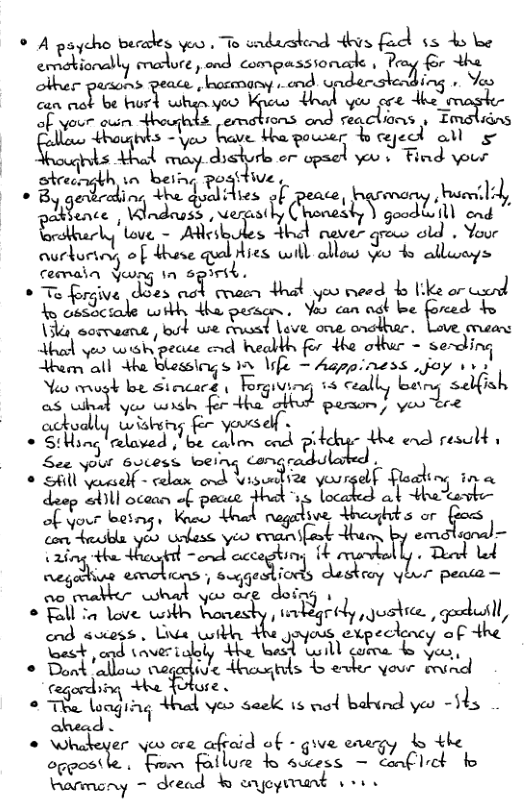 • A psycho berates you. To understand this fact is to be
emotionally mature, and compassionate. Pray for the
other persons peace, harmony, and understanding. You
can not be hurt when you know that you are the master
of your own thoughts, emotions and reactions. Emotions
follow thoughts - you have the power to reject all 5
thoughts that may disturb or upset you. Find your
strength in being positive.
• By generating the qualities of peace, harmony, humility,
patience, kindness, verasity (honesty) goodwill and
brotherly love - Attributes that never grow old. Your
nurturing of these qualities will allow you to allways
remain young in spirit.
• To forgive does not mean that you need to like or want
to associate with the person. You can not be forced to
like someone, but we must love one another. Love means
that you wish peace and health for the other - sending
them all the blessings in life - happiness, joy ...
You must be sincere. Forgiving is really being selfish
as what you wish for the other person, you are
actually wishing for yourself.
• Sitting relaxed, be calm and pitcher the end result.
See your sucess being congradulated.
• Still yourself - relax and visualize yourself floating in a
deep still ocean of peace that is located at the center
of your being. Know that negative thoughts or fears
can trouble you unless you manifest them by emotional-
izing the thought - and accepting it mentally. Dont let
negative emotions, suggestions destroy your peace -
no matter what you are doing.
• Fall in love with honesty, integrity, justice, goodwill,
and sucess. Live with the joyous expectancy of the
best, and invariably the best will come to you.
• Dont allow negative thoughts to enter your mind
regarding the future.
• The longing that you seek is not behind you - its ..
ahead.
• Whatever you are afraid of - give energy to the
opposite. From failure to sucess - conflict to
harmony - dread to enjoyment ....